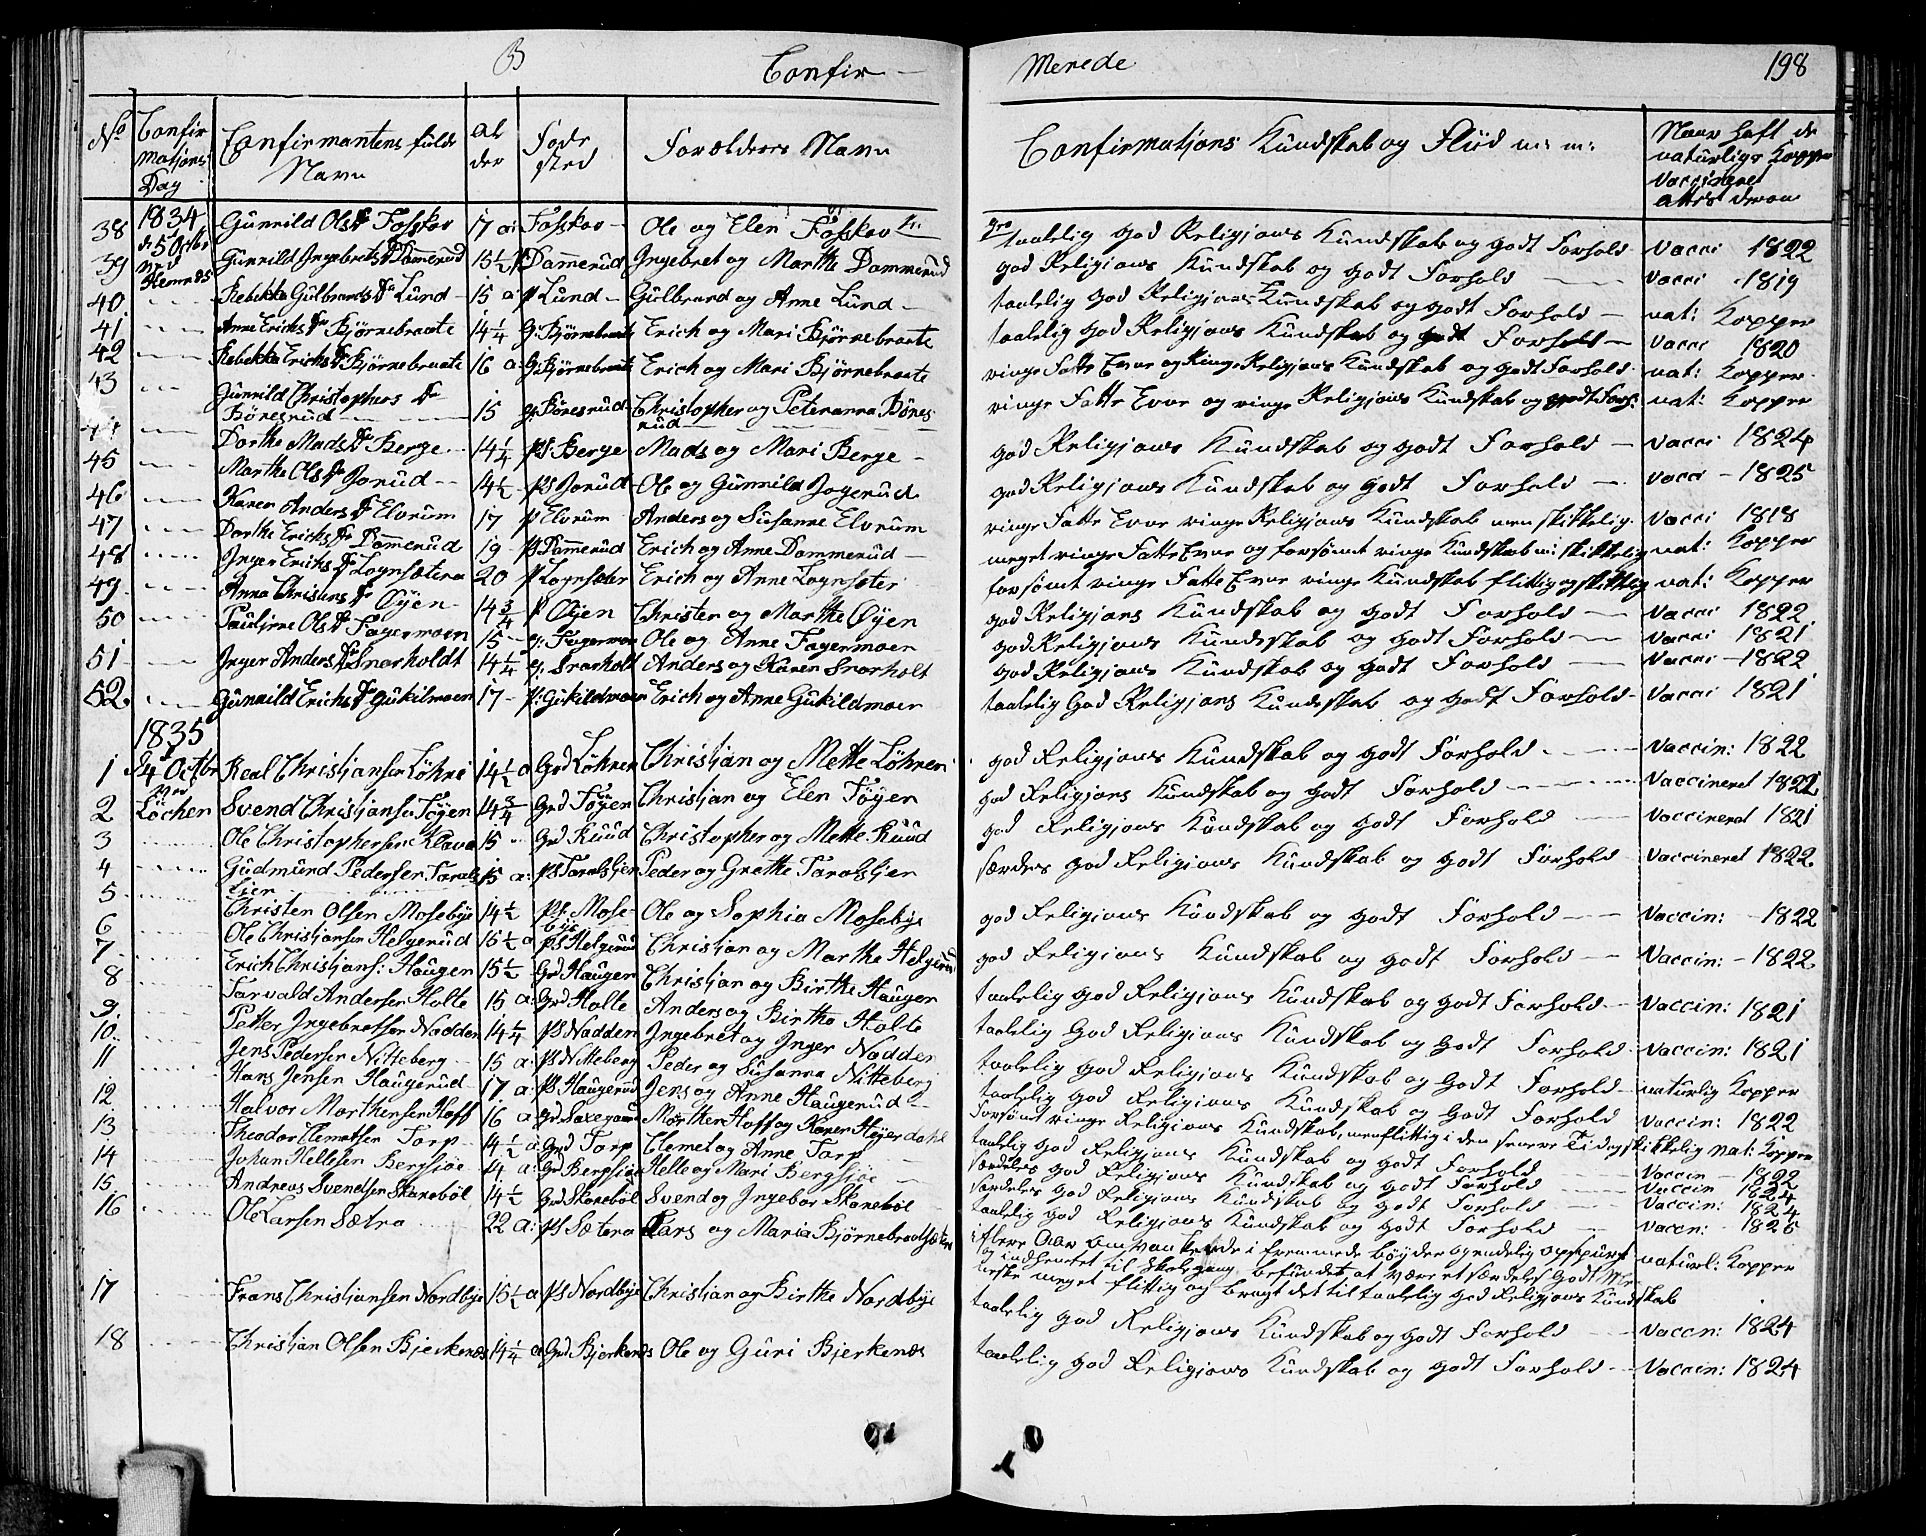 B
Confir —
Merede
198
No
Confir
mations
Dag
Confirmantens fulde
Navn
Al
der
Føde
sted
Forældrenes Navn
Confirmations Kundskab og Fliid m: m:
Naar haft de
naturlige Kopper
Vaccineret
attest derom
1834
d: 5 Octbr
ved
Hemnes
38 Gunnild Ols Dr Fosskov 17 a: Fosskov Ole og Elen Fosskov taalelig god Religions Kundskab og godt Forhold Vacci 1822
39 Gunnild Ingebrets Dr Dammerud 15½ Dammerud Ingebret og Marthe Dammerud god Religions Kundskab og godt Forhold Vacci 1819
40 Rebekka Gulbrands Dr Lund 15 a p Lund Gulbrand og Anne Lund taalelig god Religions Kundskab og godt Forhold nat: Kopper
41 Anne Erichs Dr Bjørnebraate 14¼ g: Bjørnebraate Erich og Mari Bjørnebraate taalelig god Religions Kundskab og godt Forhold Vacci 1820
42 Rebekka Erichs Dr Bjørnebraate 16 a g: Bjørnebraate Erich og Mari Bjørnebraate ringe Fatte Evne og Ringe Religions Kundskab og godt Forhold nat: Kopper
43 Gunnild Christophers Dr
Børesrud 15 g: Børesrud Christopher og Peteranna Børes
rud ringe Fatte Evne og ringe Religions Kundskab og godt Forh: nat: Kopper
44 Dorthe Mads Dr Berge 14¼ ps Berge Mads og Mari Berge god Religions Kundskab og godt Forhold Vacci 1824
45 Marthe Ols Dr Jorud 14½ ps Jorud Ole og Gunnild Jogerud god Religions Kundskab og godt Forhold Vacci 1825
46 Karen Anders Dr Elvrum 17 p Elvrum Anders og Susanne Elvrum ringe Fatte Evne ringe Religions Kundskab men skikkelig Vacci 1818
47 Dorthe Erichs Dr Dammerud 19 ps Dammerud Erich og Anne Dammerud meget ringe Fatte Evne og forsømt ringe Kundskab m: skikkelig nat: Kopper
48 Inger Erichs Dr Lognsætera 20 p Lognsæter Erich og Anne Lognsæter forsømt ringe Fatte Evne ringe Kundskab flittig og skikkelig nat: Kopper
49 Anna Christens Dr Øyen 14¾ p Øyen Christen og Marthe Øyen god Religions Kundskab og godt Forhold Vacci 1822
50 Pauline Ols Dr Fagermoen 15 g: Fagermoen Ole og Anne Fagermoen god Religions Kundskab og godt Forhold Vacci 1821
51 Inger Anders Dr Snarholdt 14¼ g: Snarholt Anders og Karen Snarholt god Religions Kundskab og godt Forhold Vacci 1822
52 Gunnild Erichs Dr Gukilmoen 17 p: Gukildmoen Erich og Anne Gukildmoen taalelig God Religions Kundskab og godt Forhold Vacci 1821
1835
d 4 Octbr
ved
Løchen
1 Christjansen Løhre 14½ a Grd Løhren Christjan og Mette Løhren god Religions Kundskab og godt Forhold Vaccin: 1822
2 Svend Christjansen Tøyen 14¾ Grd Tøyen Christjan og Elen Tøyen god Religions Kundskab og godt Forhold Vaccineret 1822
3 Ole Christophersen Klava 15 Grd Ruud Christopher og Mette Ruud god Religions Kundskab og godt Forhold Vaccineret 1821
4 Gudmund Pedersen Tarals
lien 15 a: ps Taralslien Peder og Grethe Taralslien særdes god Religions Kundskab og godt Forhold Vaccineret 1822
5 Christen Olsen Mosebye 14½ ps Mose-
bye Ole og Sophia Mosebye god Religions Kundskab og godt Forhold Vaccin: 1822
6 Ole Christjansen Helgerud 15½ a ps Helgerud Christjan og Marthe Helgerud god Religions Kundskab og godt Forhold Vaccin: 1822
7 Erich Christjans: Haugen 15½ Grd Haugen Christjan og Birthe Haugen taalelig god Religions Kundskab og godt Forhold Vaccin: 1821
8 Tarvald Andersen Holte 15 a: Grd Holte Anders og Birthe Holte taalelig God Religions Kundskab og Godt Forhold Vaccin: 1821
9 Petter Ingebretsen Nadden 14¼ ps Nadden Ingebret og Inger Nadden taalelig god Religions Kundskab og Godt Forhold naturlig Kopper
10 Jens Pedersen Nitteberg 15 a: ps Nitteberg Peder og Susanna Nitteberg taalelig god Religions Kundskab og Godt Forhold Vaccin: 1822
11 Hans Jensen Haugerud 17. a: ps Haugerud Jens og Anne Haugerud Forsømt ringe Religions Kundskab, men flittig i den senere Tid og skikkelig nat: Kopper
12 Halvor Morthensen Hoff 16 a Grd Morthen Hoff og Karen Heyerdahl taalelig god Religions Kundskab og godt Forhold Vaccin 1822
13 Theodor Clemetsen Tarp 14½ a Grd Tarp Clemet og Anne Tarp særdeles god Religions Kundskab og godt Forhold Vaccin 1824
14 Johan Hellesen Bergsjøe 14 a: Grd Bergsjøe Helle og Mari Bergsjøe særdeles god Religions Kundskab og godt Forhold Vaccin: 1824
15 Andreas Svendsen Skarebøl 14½ Grd Skarebøl Svend og Ingebor Skarebøl taalelig god Religions Kundskab og godt Forhold Vaccn: 1825
16 Ole Larsen Sætra 22 a: ps Sætera Lars og Maria Bjørnebraatsætera i flere Aar omvankende i fremmede bøyder og endelig opspurgt
og indhentet til skolegang befundet at være et særdeles godt Men-
neske meget flittig og bragt det til taalelig god Religions Kundskab naturl: Kopper
17 Frans Christjansen Nordbye 15½ a ps Nordbye Christjan og Birthe Nordbye taalelig god Religions Kundskab og godt Forhold Vaccn: 1824
18 Christjan Olsen Bjerkenæs 14¼ a Grd Bjerkenæs Ole og Guri Bjerkenæs taalelig god Religions Kundskab og godt Forhold Vaccin: 1824